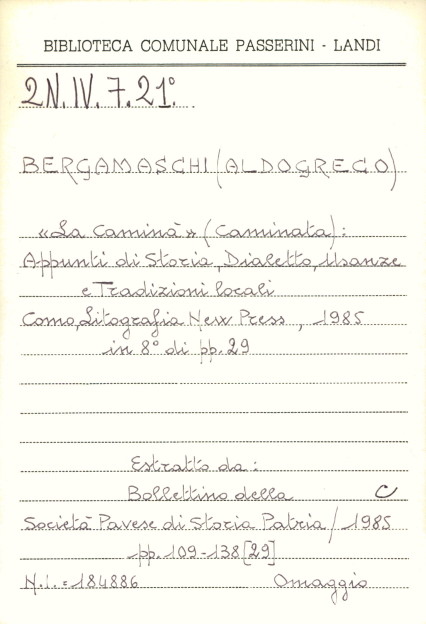 BIBLIOTECA COMUNALE PASSERINI - LANDI
2N.IV.7.21°.
BERGAMASCHI (ALDOGRECO)
«La Caminà» (Caminata):
Appunti di Storia, Dialetto, Usanze
e Tradizioni locali
Como, Litografia New Press, 1985
in 8° di pp. 29
Estratto da:
Bollettino della C
Società Pavese di Storia Patria / 1985
pp. 109-138 [29]
N.i. = 184886 Omaggio